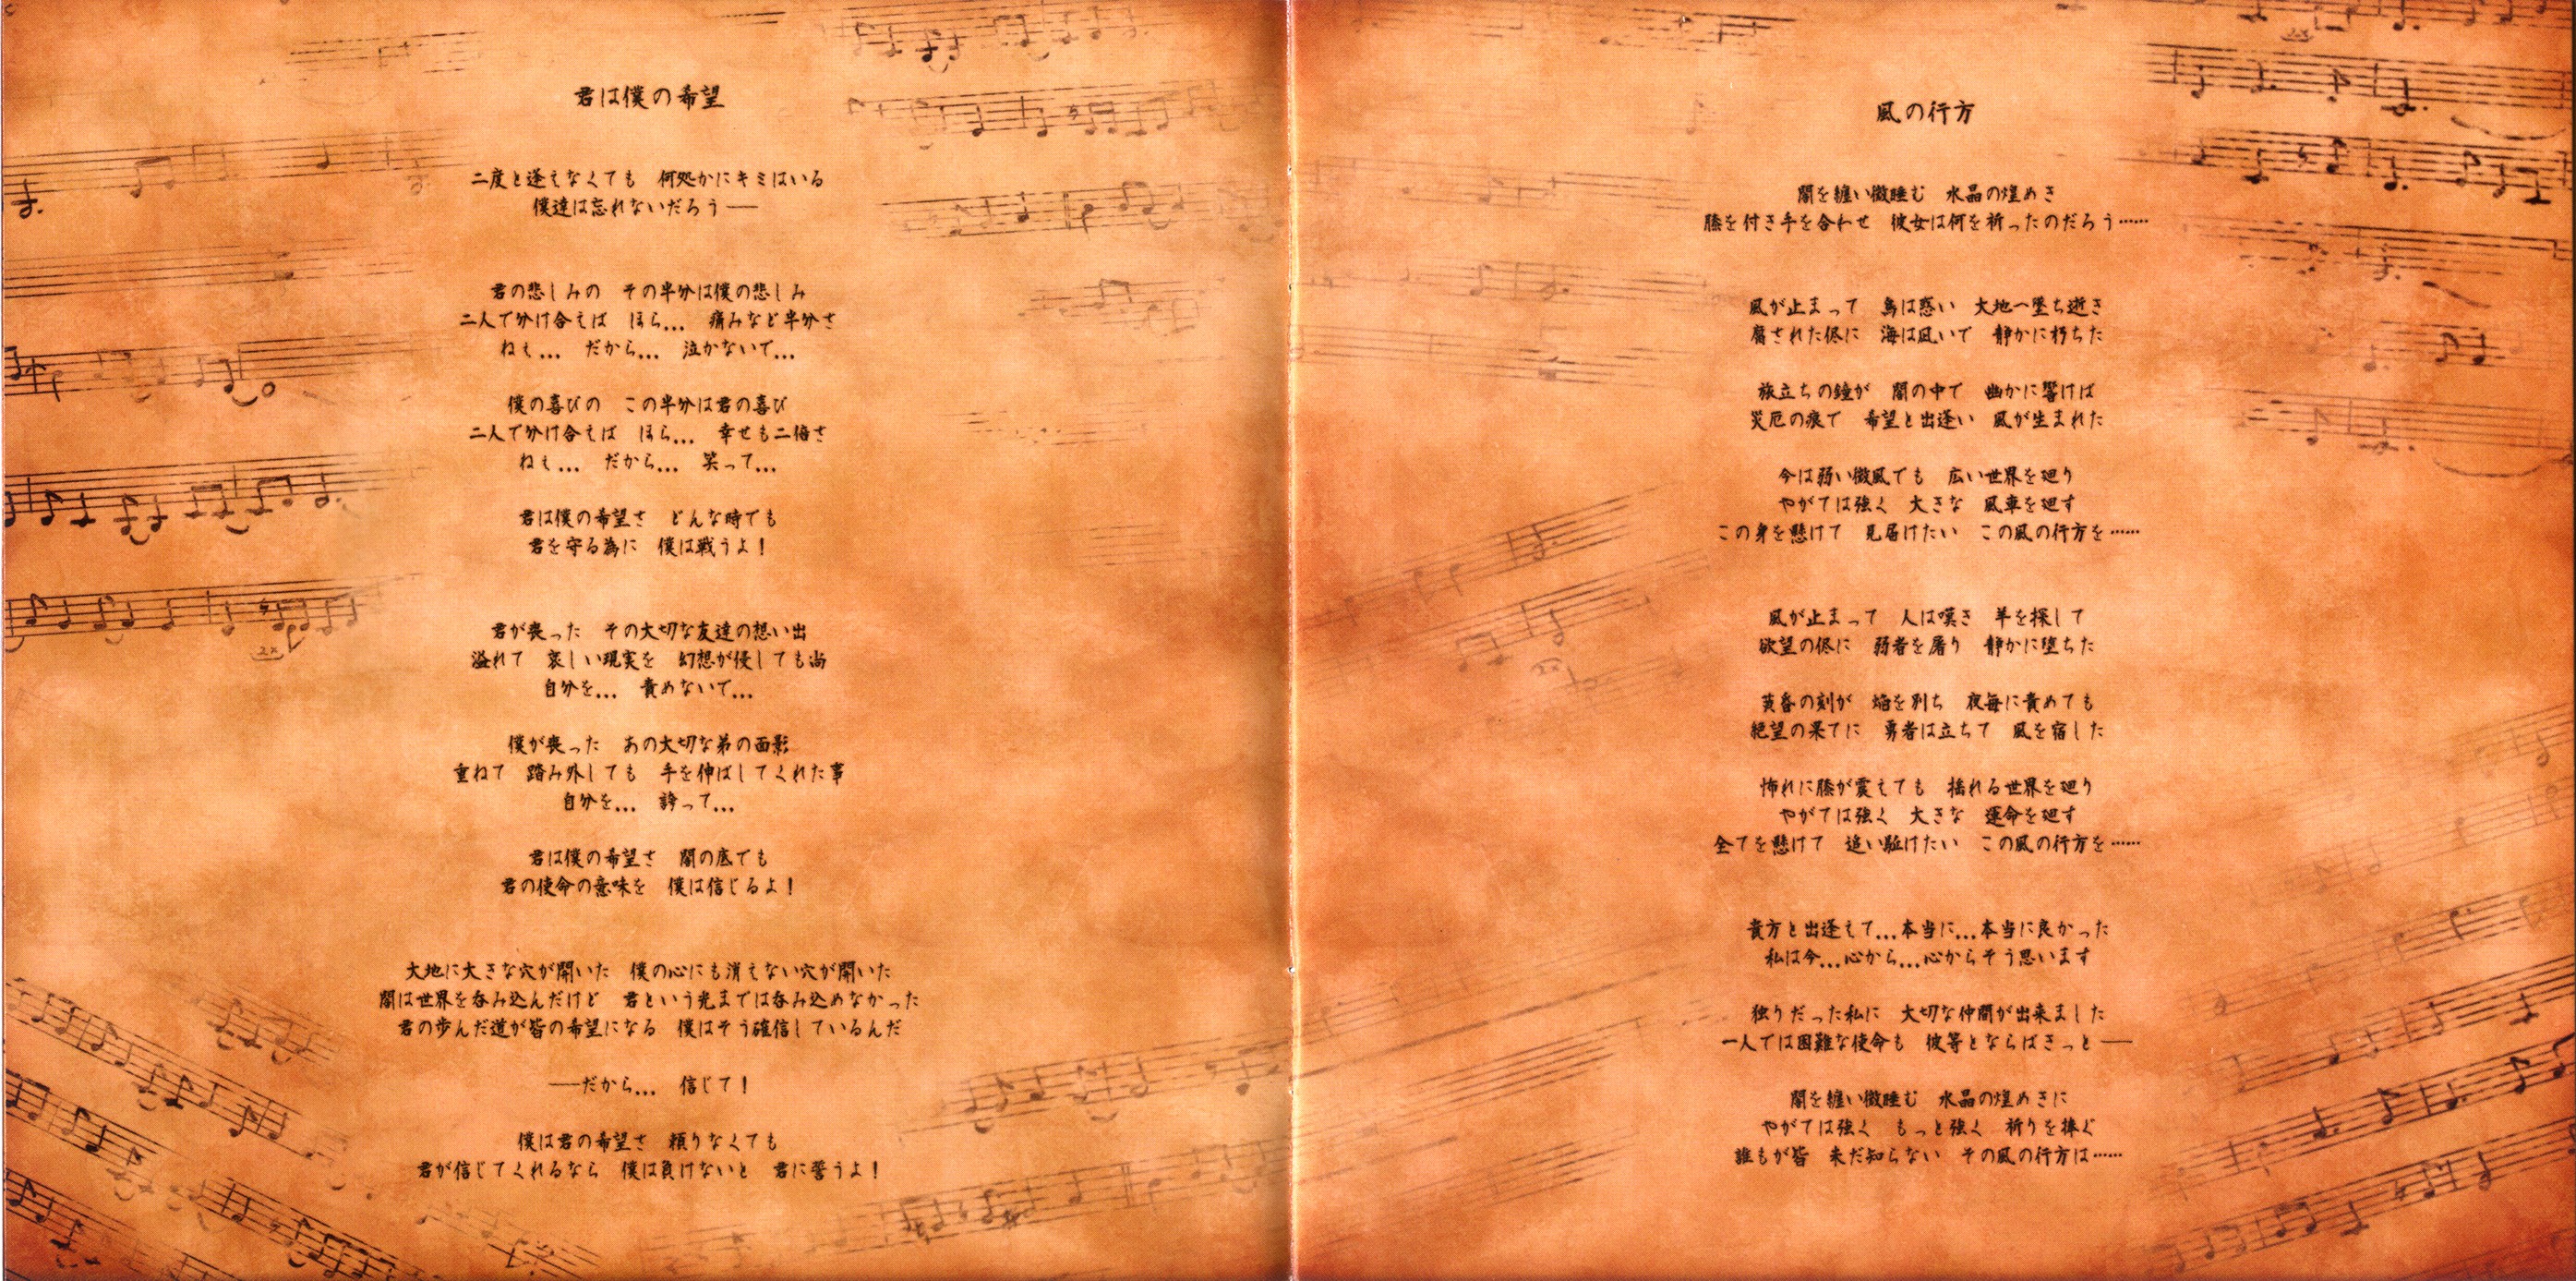 君は僕の希望
二度と逢えなくても　何処かにキミはいる
僕達は忘れないだろう──
君の悲しみの　その半分は僕の悲しみ
二人で分け合えば　ほら...　痛みなど半分さ
ねぇ...　だから...　泣かないで...
僕の喜びの　この半分は君の喜び
二人で分け合えば　ほら...　幸せも二倍さ
ねぇ...　だから...　笑って...
君は僕の希望さ　どんな時でも
君を守る為に　僕は戦うよ！
君が喪った　その大切な友達の想い出
溢れて　哀しい現実を　幻想が侵しても尚
自分を...　責めないで...
僕が喪った　あの大切な弟の面影
重ねて　踏み外しても　手を伸ばしてくれた事
自分を...　誇って...
君は僕の希望さ　闇の底でも
君の使命の意味を　僕は信じるよ！
大地に大きな穴が開いた　僕の心にも消えない穴が開いた
闇は世界を呑み込んだけど　君という光までは呑み込めなかった
君の歩んだ道が皆の希望になる　僕はそう確信しているんだ
──だから...　信じて！
僕は君の希望さ　頼りなくても
君が信じてくれるなら　僕は負けないと　君に誓うよ！
風の行方
闇を纏い微睡む　水晶の煌めき
膝を付き手を合わせ　彼女は何を祈ったのだろう……
風が止まって　鳥は惑い　大地へ墜ち逝き
腐された侭に　海は凪いで　静かに朽ちた
旅立ちの鐘が　闇の中で　幽かに響けば
災厄の痕で　希望と出逢い　風が生まれた
今は弱い微風でも　広い世界を廻り
やがては強く　大きな　風車を廻す
この身を懸けて　見届けたい　この風の行方を……
風が止まって　人は嘆き　羊を探して
欲望の侭に　弱者を屠り　静かに堕ちた
黄昏の刻が　焔を別ち　夜毎に責めても
絶望の果てに　勇者は立ちて　風を宿した
怖れに膝が震えても　揺れる世界を廻り
やがては強く　大きな　運命を廻す
全てを懸けて　追い駈けたい　この風の行方を……
貴方と出逢えて...本当に...本当に良かった
私は今...心から...心からそう思います
独りだった私に　大切な仲間が出来ました
一人では困難な使命も　彼等とならばきっと──
闇を纏い微睡む　水晶の煌めきに
やがては強く　もっと強く　祈りを捧ぐ
誰もが皆　未だ知らない　その風の行方は……